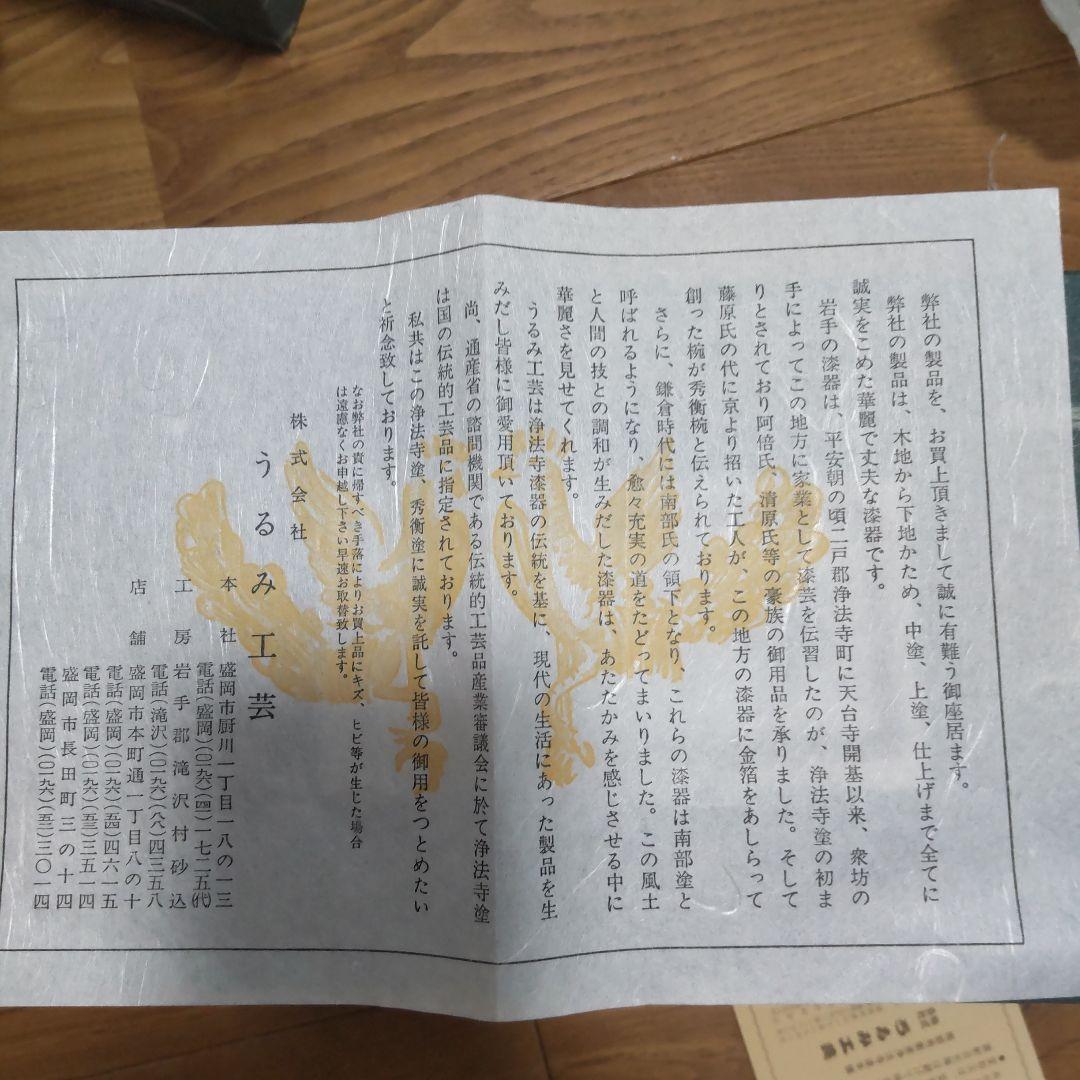 弊社の製品を、お買上頂きまして誠に有難う御座居ます。
弊社の製品は、木地から下地かため、中塗、上塗、仕上げまで全てに
誠実をこめた華麗で丈夫な漆器です。
岩手の漆器は、平安朝の頃二戸郡浄法寺町に天台寺開基以来、衆坊の
手によってこの地方に家業として漆芸を伝習したのが、浄法寺塗の初ま
りとされており阿倍氏、清原氏等の豪族の御用品を承りました。そして
藤原氏の代に京より招いた工人が、この地方の漆器に金箔をあしらって
創った椀が秀衡椀と伝えられております。
さらに、鎌倉時代には南部氏の領下となり、これらの漆器は南部塗と
呼ばれるようになり、愈々充実の道をたどってまいりました。この風土
と人間の技との調和が生みだした漆器は、あたたかみを感じさせる中に
華麗さを見せてくれます。
うるみ工芸は浄法寺漆器の伝統を基に、現代の生活にあった製品を生
みだし皆様に御愛用頂いております。
尚、通産省の諮問機関である伝統的工芸品産業審議会に於て浄法寺塗
は国の伝統的工芸品に指定されております。
私共はこの浄法寺塗、秀衡塗に誠実を託して皆様の御用をつとめたい
と祈念致しております。
なお弊社の責に帰すべき手落によりお買上品にキズ、ヒビ等が生じた場合
は遠慮なくお申越し下さい早速お取替致します。
株式会社
うるみ工芸
本社 盛岡市厨川一丁目一八の一三
電話(盛岡)(〇一九六)(四一)一七二五(代)
工房 岩手郡滝沢村砂込
電話(滝沢)(〇一九六)(八八)四三五八
店舗 盛岡市本町通一丁目八の十
電話(盛岡)(〇一九六)(五四)四六一五
電話(盛岡)(〇一九六)(五三)三五一四
盛岡市長田町三の十四
電話(盛岡)(〇一九六)(五三)三〇一四
うるみ工芸